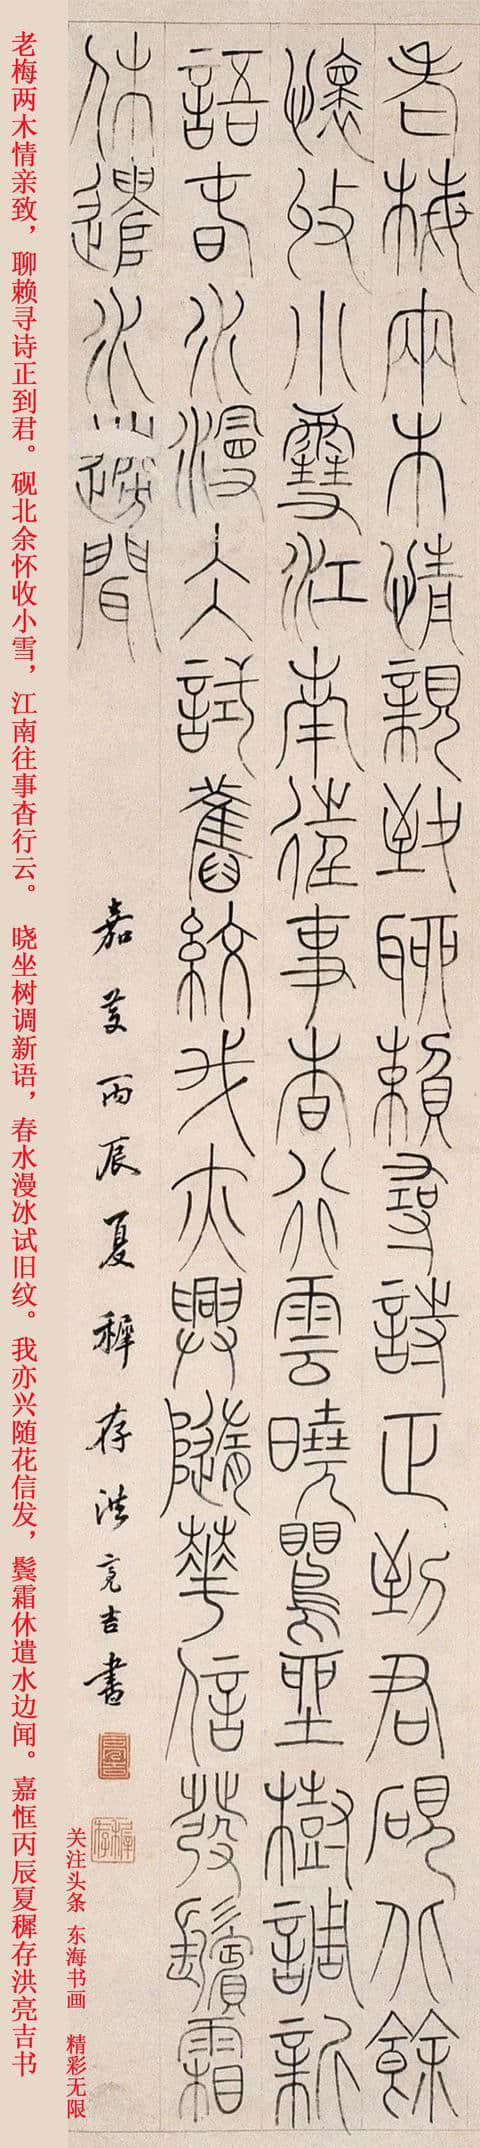 老梅兩木情親致聊賴尋詩正到君硯北餘
懷收小雪江南往事杳行雲曉鸎坐樹調新
語春水漫冰試舊紋我亦興隨華信發鬢霜
休遣水邊聞
嘉慶丙辰夏穉存洪亮吉書
老梅两木情亲致，聊赖寻诗正到君。砚北余怀收小雪，江南往事杳行云。 晓坐树调新语，春水漫冰试旧纹。我亦兴随花信发，鬓霜休遣水边闻。嘉恇丙辰夏穉存洪亮吉书
关注头条 东海书画 精彩无限